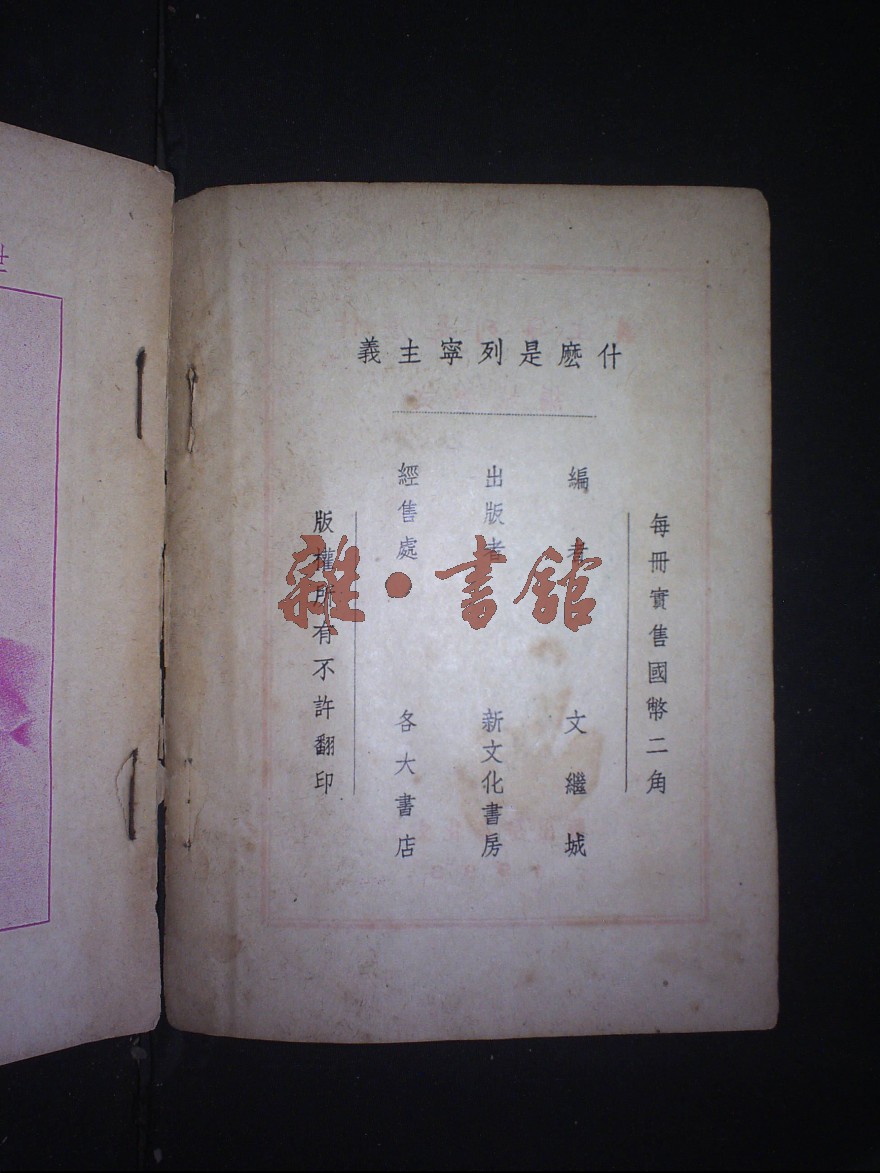 什麽是列寧主義
每冊實售國幣二角
編者 文繼城
出版者 新文化書房
經售處 各大書店
版權所有不許翻印
雜·書館